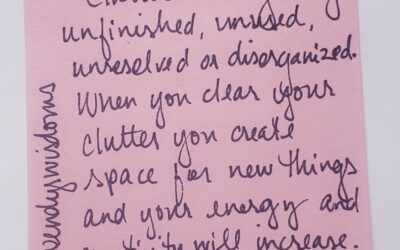 unfinished, unused,
unresolved or disorganized.
When you clear your
clutter you create
space for new things
and your energy and
will increase.
wendyswisdoms